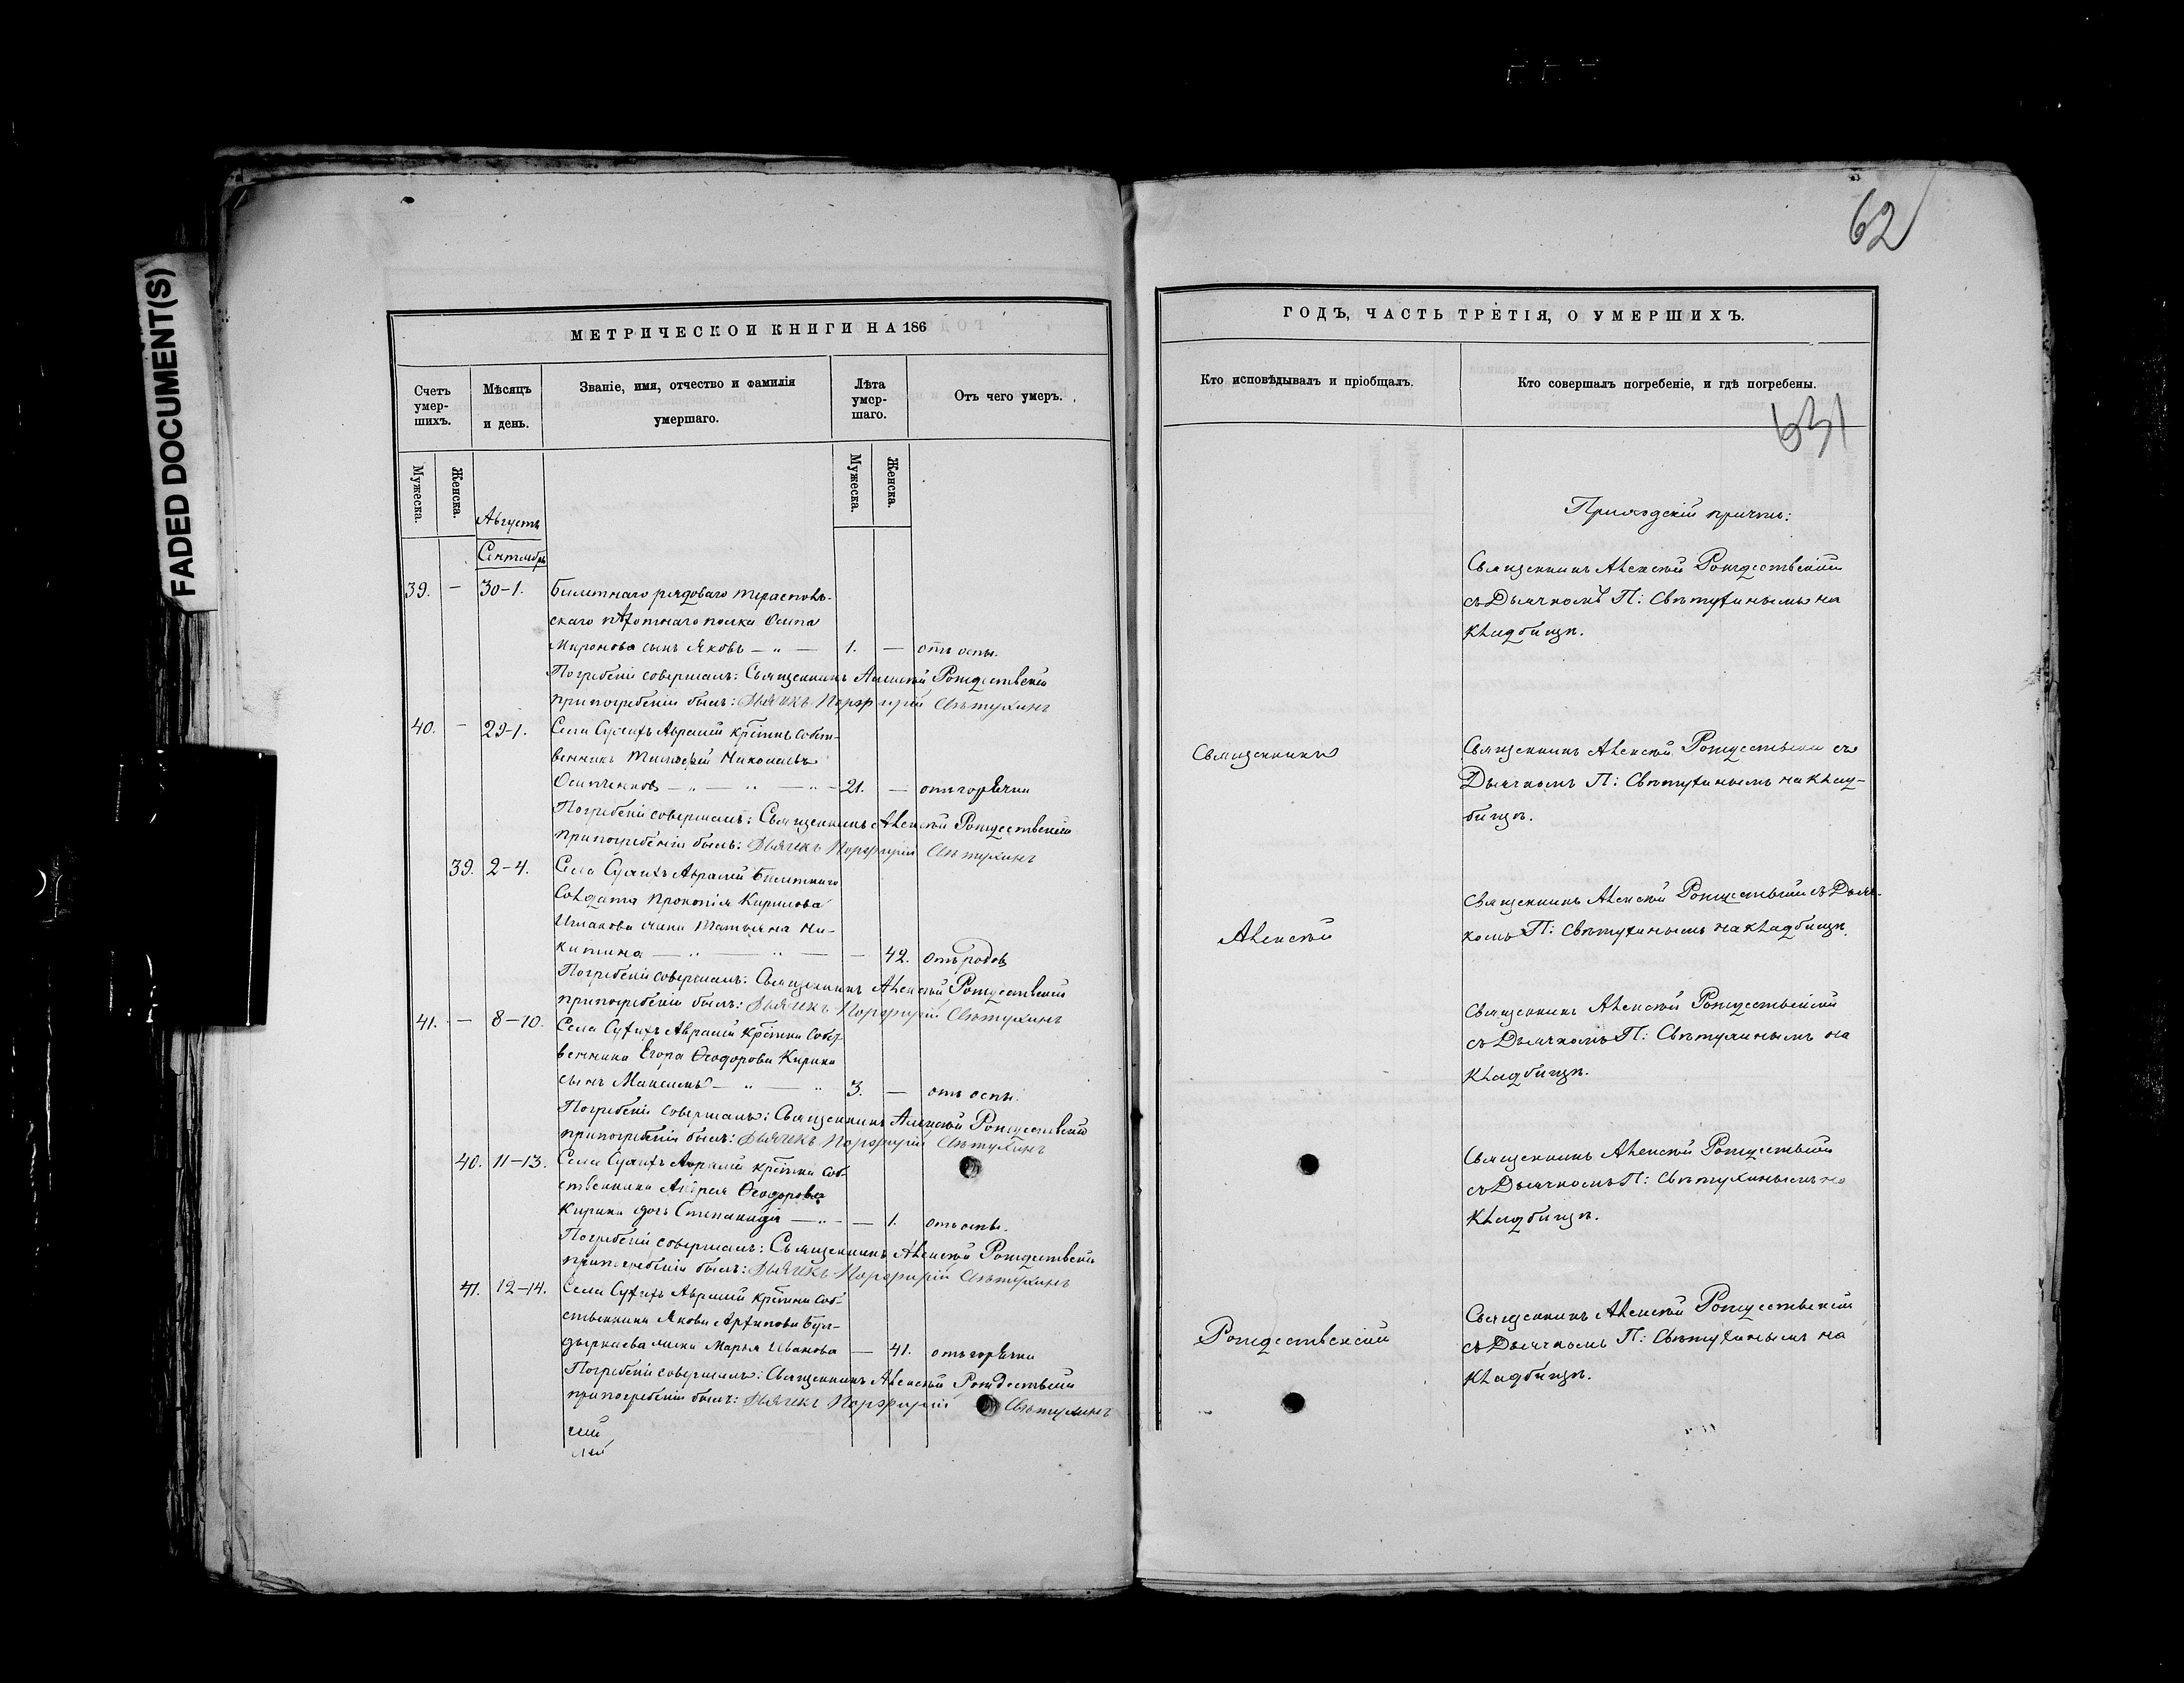 FADED DOCUMENT(S)
62
МЕТРИЧЕСКОЙ КНИГИ НА 186
Счетъ умер-шихъ.
Мѣсяцъ и день.
Званіе, имя, отчество и фамилія умершаго.
Лѣта умер-шаго.
Отъ чего умеръ.
Мужеска.
Женска.
Мужеска.
Женска.
Августъ
Сентябрь
39. — 30-1. Билетнаго рядоваго Тираспольс-
скаго пѣхотнаго полка Осипа
Миронова сынъ Яковъ — " — 1. — отъ оспы.
Погребеніе совершалъ: Священникъ Алексѣй Рождественскій
при погребеніи былъ: Дьячекъ Порфирій Свѣтухинъ
40. — 29-1. Села Авраміи крестн. собст-
венникъ Тимофей Николаевъ
Осипенковъ — " — " — " — 21. — отъ горячки
Погребеніе совершалъ: Священникъ Алексѣй Рождественскій
при погребеніи былъ: Дьячекъ Порфирій Свѣтухинъ
39. 2-4. Села Авраміи Билетнаго
Солдата Прокопія Кирилова
жена Татьяна Ни-
китина — " — " — — 42. отъ родовъ
Погребеніе совершалъ: Священникъ Алексѣй Рождественскій
при погребеніи былъ: Дьячекъ Порфирій Свѣтухинъ
41. — 8-10. Села Авраміи крестн. собст
венника Егора Ѳеодорова Кирика
сынъ Максимъ — " — " 3. — отъ оспы.
Погребеніе совершалъ: Священникъ Алексѣй Рождественскій
при погребеніи былъ: Дьячекъ Порфирій Свѣтухинъ
40. 11-13. Села Авраміи крестн. соб-
ственника Андрея Ѳеодорова
Кирика дочь Степанида — " — — 1. отъ оспы.
Погребеніе совершалъ: Священникъ Алексѣй Рождественскій
при погребеніи былъ: Дьячекъ Порфирій Свѣтухинъ
41. 12-14. Села Авраміи крестн. соб-
ственника Якова Архипова
жена Марья Иванова — 41. отъ горячки
Погребеніе совершалъ: Священникъ Алексѣй Рождественскій
при погребеніи былъ: Дьячекъ Порфирій Свѣтухинъ
ГОДЪ, ЧАСТЬ ТРЕТІЯ, О УМЕРШИХЪ.
Кто исповѣдывалъ и пріобщалъ.
Кто совершалъ погребеніе, и гдѣ погребены.
Приходскій причтъ:
Священникъ Алексѣй Рождественскій
съ Дьячкомъ П: Свѣтухинымъ на
кладбищѣ.
Священникъ
Священникъ Алексѣй Рождественскій съ
Дьячкомъ П: Свѣтухинымъ на клад-
бищѣ.
Священникъ Алексѣй Рождественскій съ Дьяч-
комъ П: Свѣтухинымъ на кладбищѣ.
Алексѣй
Священникъ Алексѣй Рождественскій
съ Дьячкомъ П: Свѣтухинымъ на
кладбищѣ.
Священникъ Алексѣй Рождественскій
съ Дьячкомъ П: Свѣтухинымъ на
кладбищѣ.
Рождественскій
Священникъ Алексѣй Рождественскій
съ Дьячкомъ П: Свѣтухинымъ на
кладбищѣ.